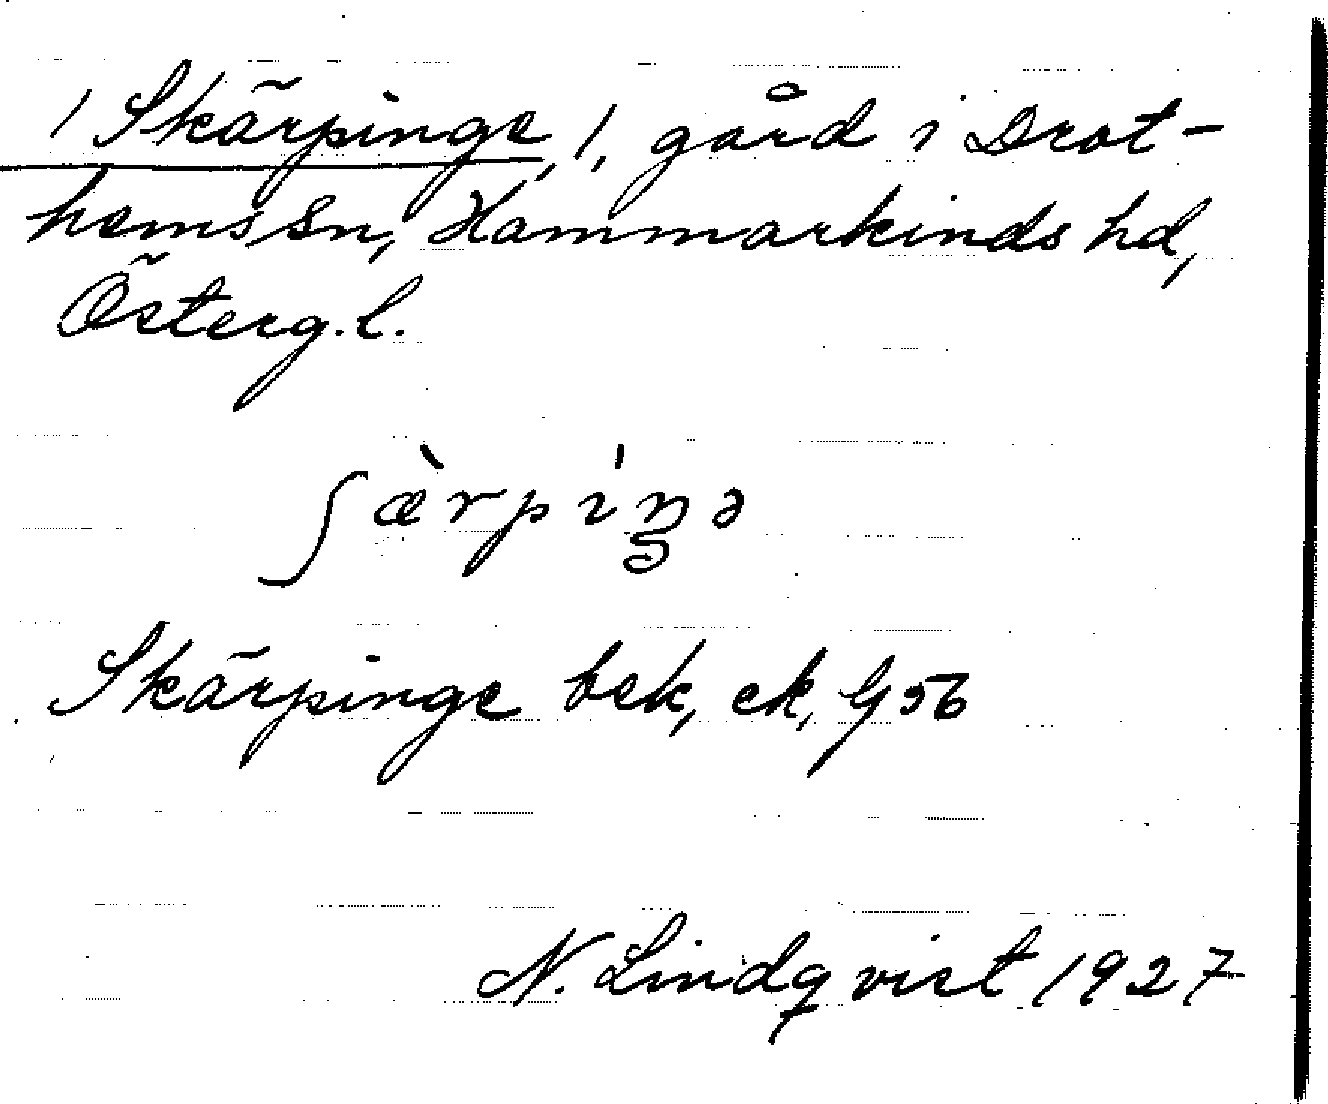 / Skärpinge, /, gård i Drot-
hems sn, Hammarkinds hd,
Österg. l.
ʃæ̀rpíŋə
Skärpinge bek, ek, G56
N. Lindqvist 1927